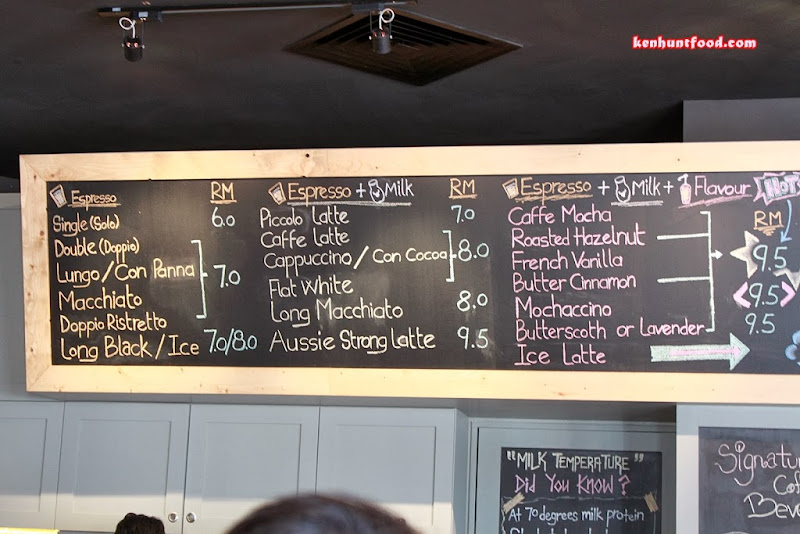 kenhuntfood.com
Espresso RM
Single (Solo) 6.0
Double (Doppio)
Lungo / Con Panna 7.0
Macchiato
Doppio Ristretto
Long Black / Ice 7.0/8.0
Espresso + Milk RM
Piccolo Latte 7.0
Caffe Latte
Cappuccino / Con Cocoa 8.0
Flat White
Long Macchiato 8.0
Aussie Strong Latte 9.5
Espresso + Milk + Flavour HOT
RM
Caffe Mocha
Roasted Hazelnut
French Vanilla 9.5
Butter Cinnamon 9.5
Mochaccino
Butterscoth or Lavender 9.5
Ice Latte
"MILK TEMPERATURE"
Did You Know?
At 70 degrees milk protein
Signatur
Cof
Beve